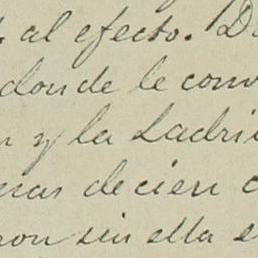 al efecto.
donde le conv
n y la Ladri
nas de cien
ron sin ella e